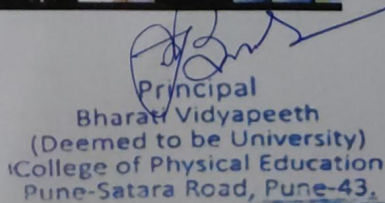 Principal
Bharati Vidyapeeth
(Deemed to be University)
College of Physical Education
Pune-Satara Road, Pune-43.